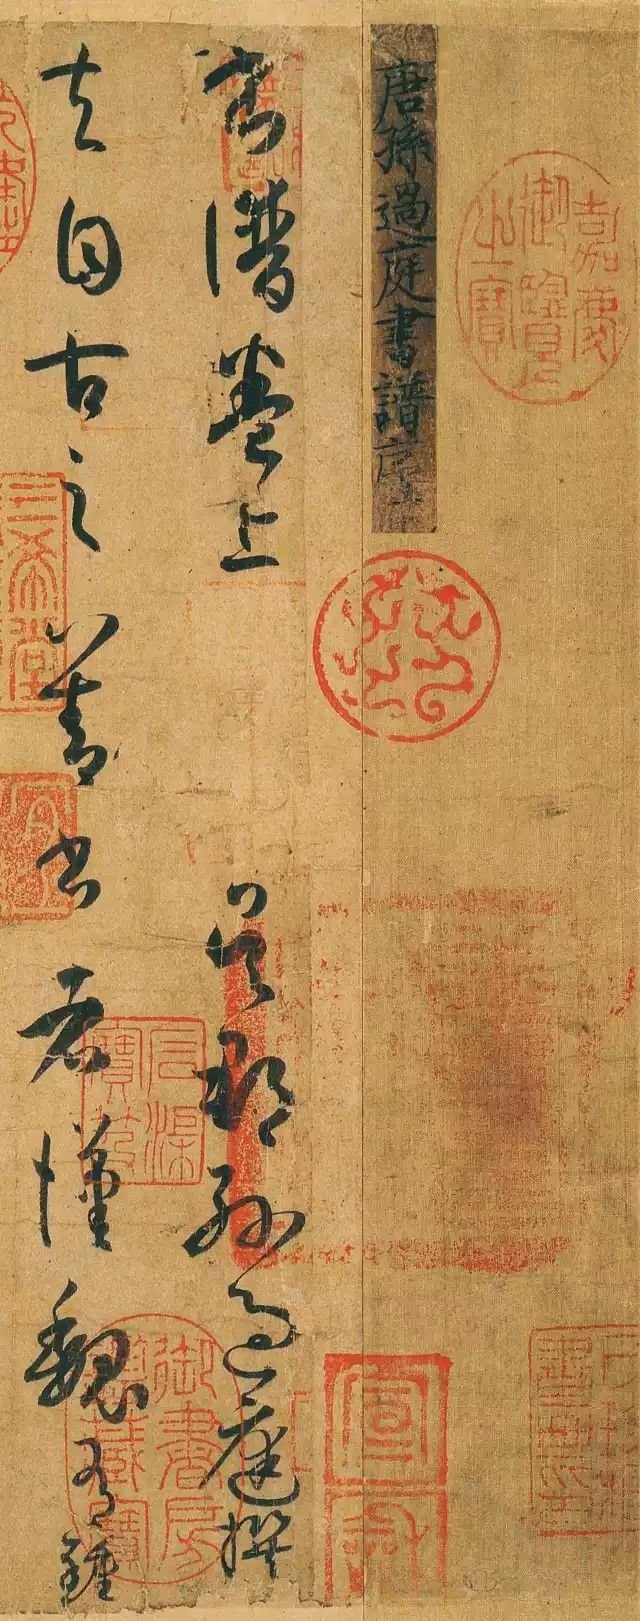 嘉慶御覽之寶
唐孫過庭書譜序
宣和
書譜卷上 吳郡孫過庭撰
夫自古之善書者漢魏有鍾
石渠寶笈
御書房鑒藏寶
三希堂